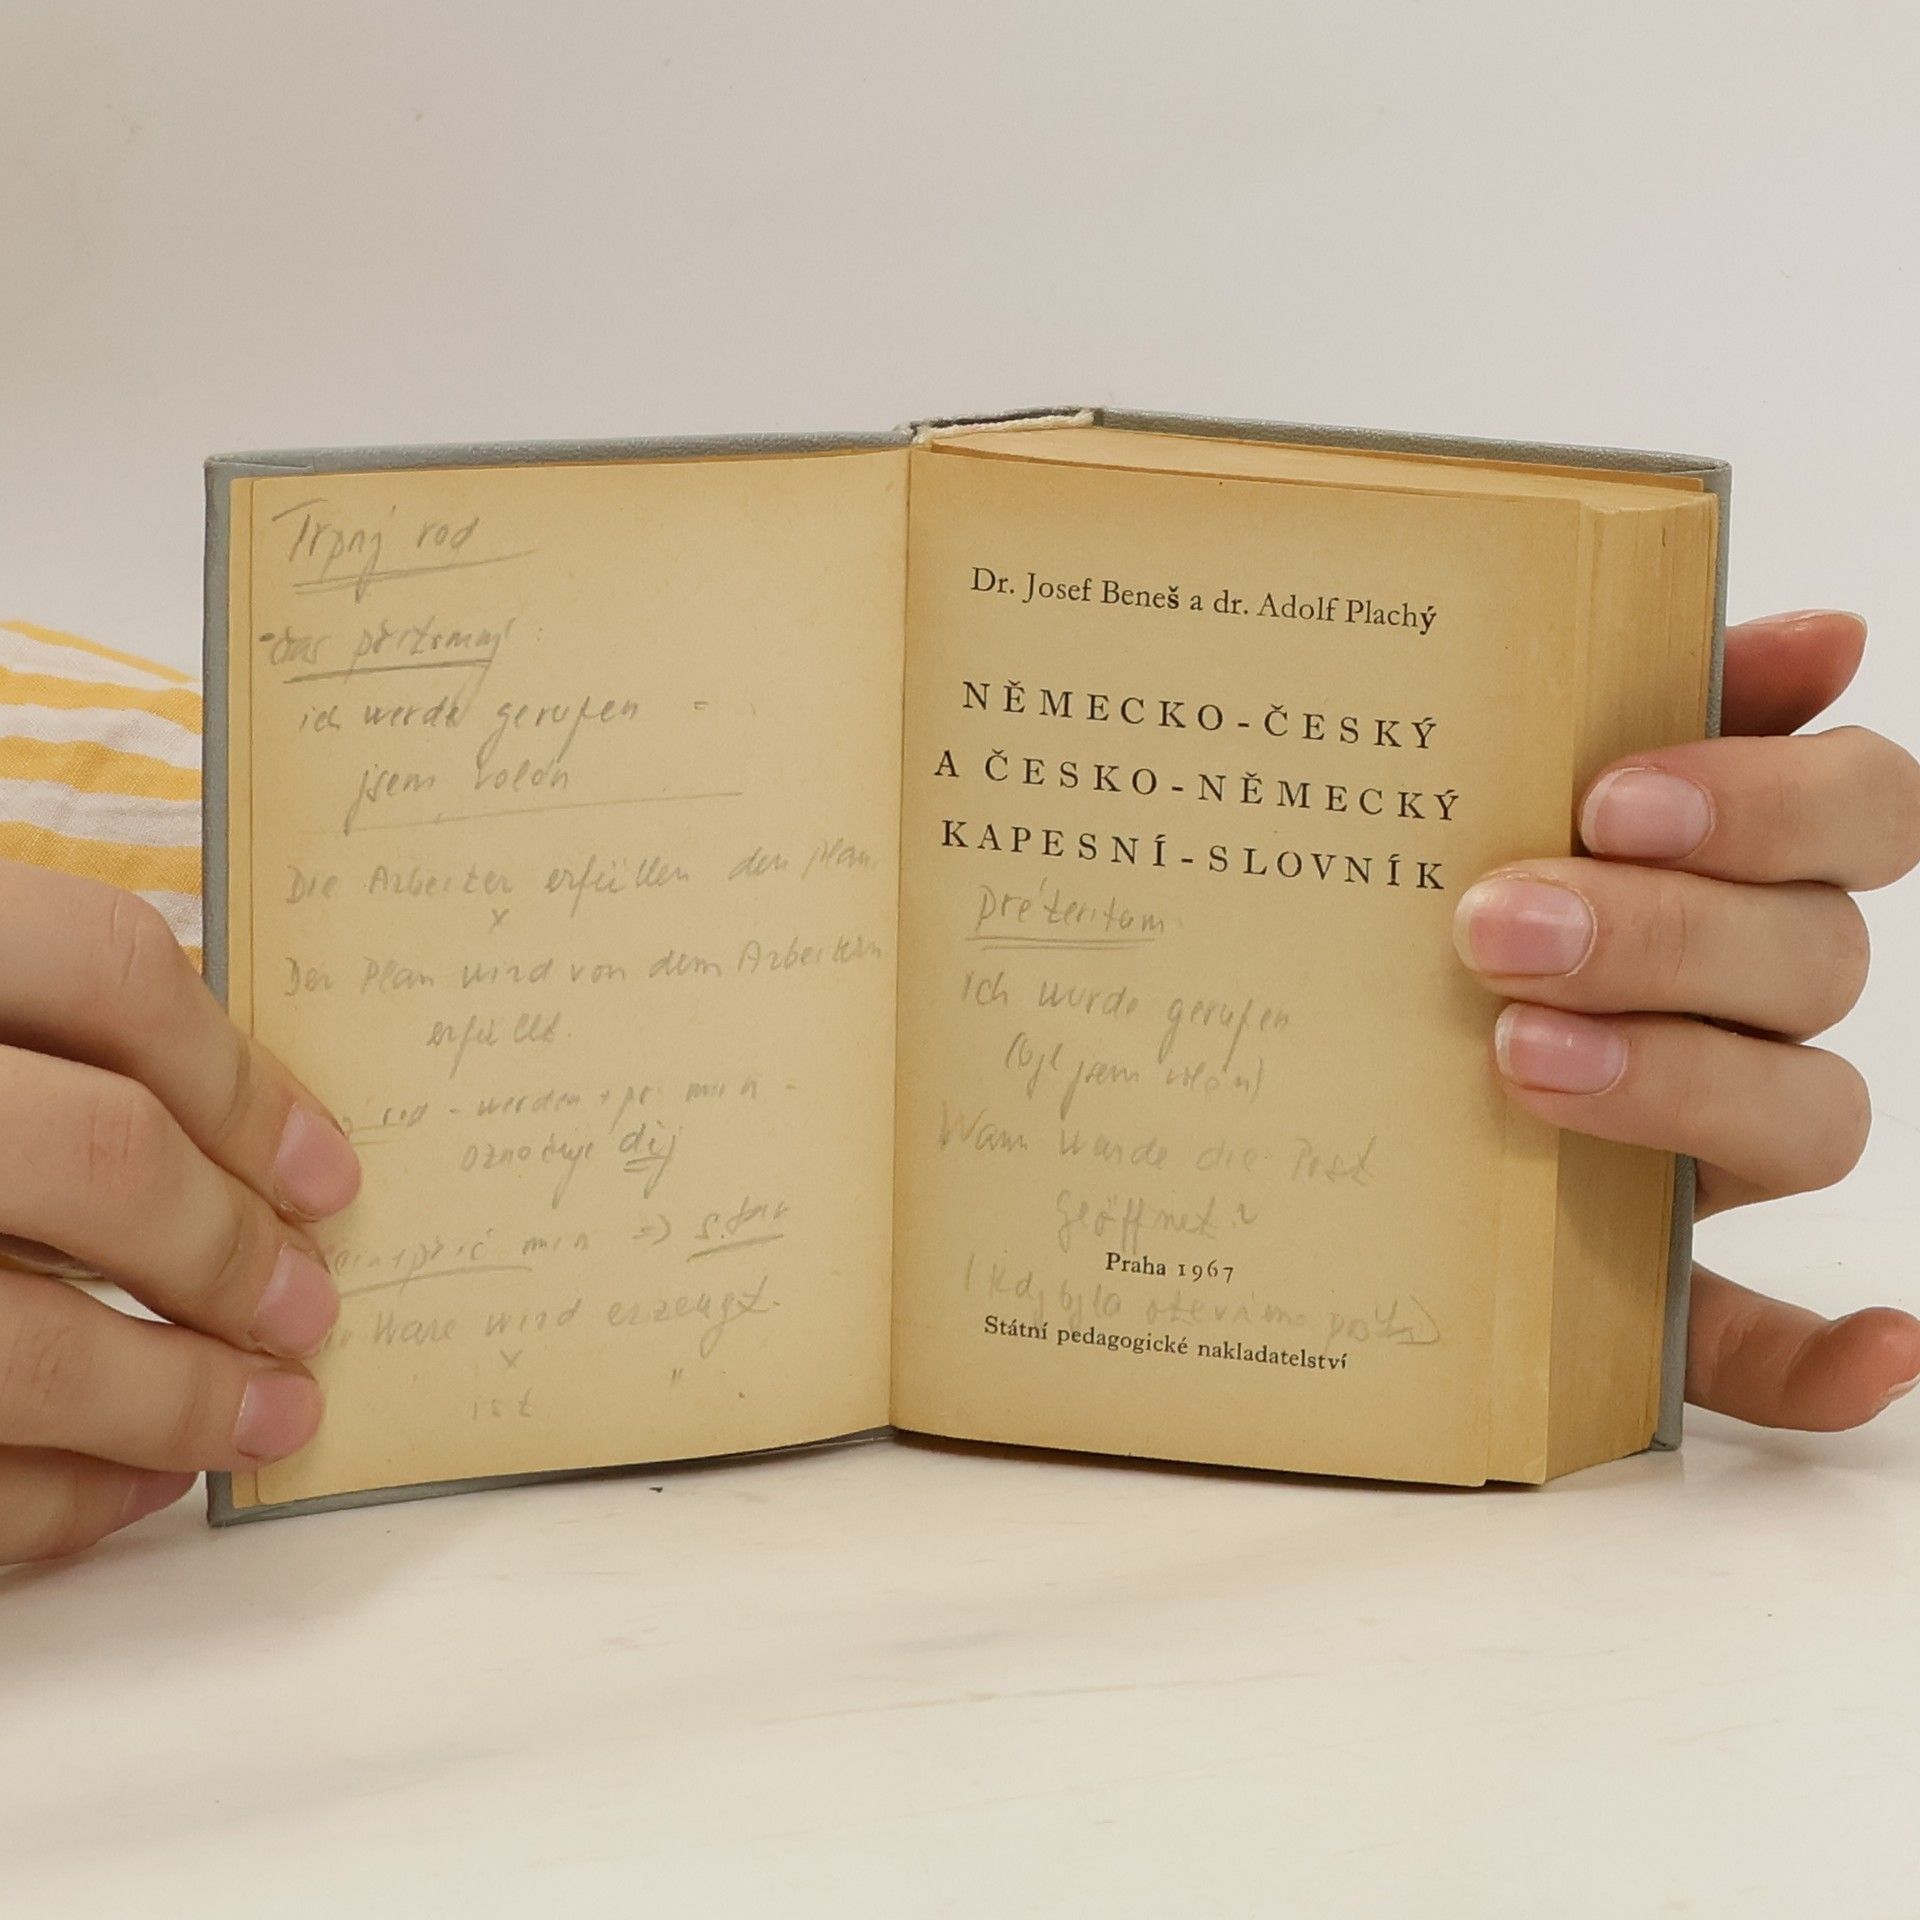 Trpný rod
čas přítomný:
ich werde gerufen =
jsem volán
Die Arbeiter erfüllen den plan.
x
Der Plan wird von dem Arbeitern
erfüllt.
rod - werden + př. min -
označuje děj
min => stav
Ware wird erzeugt.
x "
ist
Dr. Josef Beneš a dr. Adolf Plachý
NĚMECKO-ČESKÝ
A ČESKO-NĚMECKÝ
KAPESNÍ-SLOVNÍK
Préteritum
ich wurde gerufen
(byl jsem volán)
Wann wurde die Post
geöffnet?
Praha 1967
(Kdy byla otevřena pošta)
Státní pedagogické nakladatelství